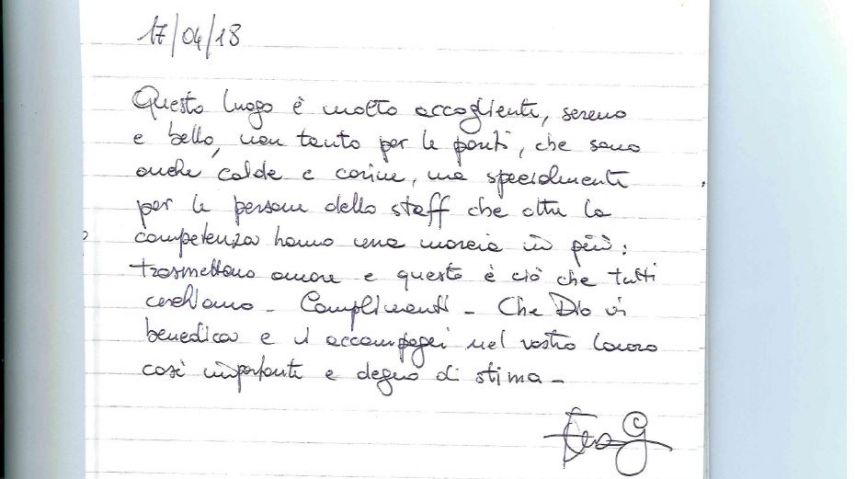 17/04/18
Questo luogo è molto accogliente, sereno
e bello, non tanto per le pareti, che sono
anche calde e carine, ma specialmente
per le persone dello staff che oltre la
competenza hanno una marcia in più:
trasmettono amore e questo è ciò che tutti
cerchiamo - Complimenti - Che Dio vi
benedica e vi accompagni nel vostro lavoro
così importante e degno di stima -